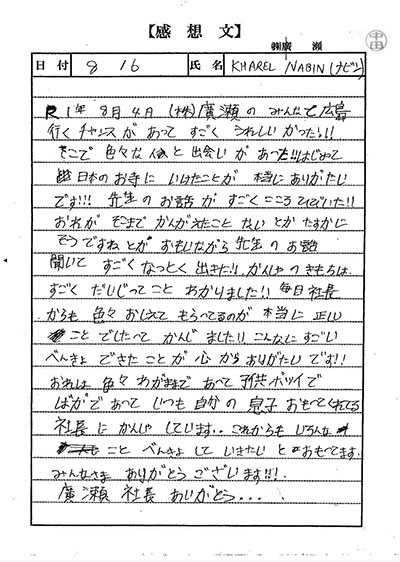 【感想文】
㈱廣瀬
日付 8 16 氏名 KHAREL NABIN (ナビン)
R1年 8月4日 (株)廣瀬の みんなで 広島
行くチャンスが あって すごく うれしいかった!!!
そこで 色々な 人と 出会いが あった!!はじめて
日本のお寺に いけたことが 本当に ありがたい
です!!! 先生の お話が すごく こころ ひびいた!!
おれが そこまで かんがえたこと ないとか たすかに
そうですねとか おもいながら 先生の お話
聞いて すごく なっとく 出きた!! かんしゃの きもちは
すごく だいじってこと わかりました!! 毎日 社長
からも 色々 おしえて もらってるのが 本当に 正しい
こと でしたって かんじました!! こんなに すごい
べんきょ できたことが 心から ありがたいです!!
おれは 色々 わがままで あって 子供ポッイで
ばかであって いつも 自分の 息子 おもってくれてる
社長に かんしゃ しています.. これからも いろんな
こと べんきょ して いきたい と おもてます.
みんなさま ありがとう ございます!!!
廣瀬 社長 ありがとう...